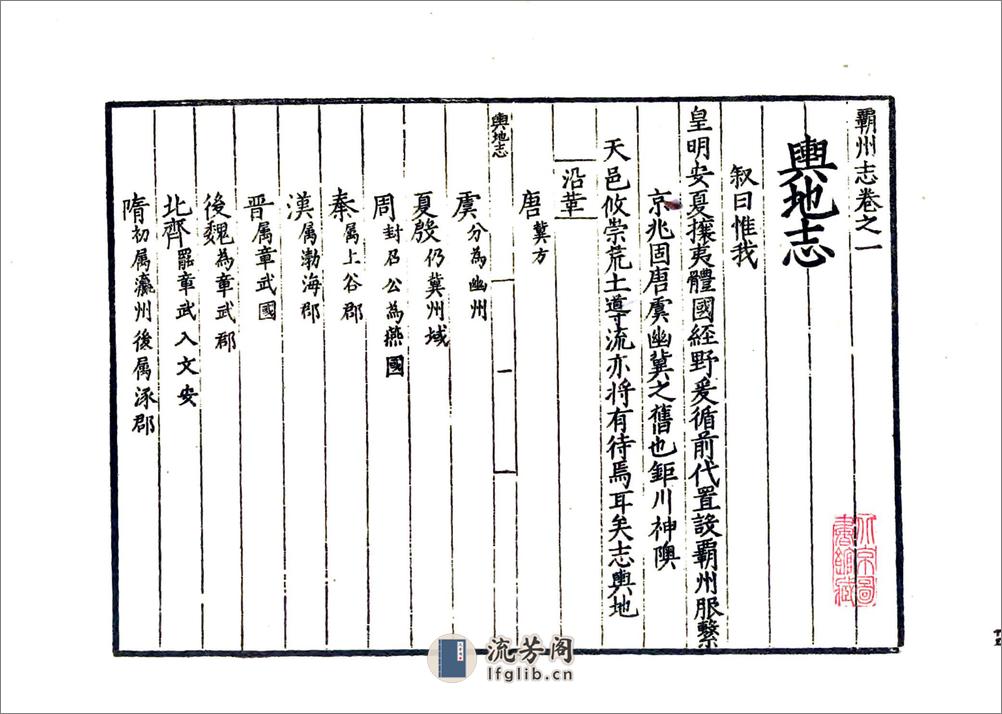 霸州志卷之一
輿地志
叙曰惟我
皇明安夏攘夷體國經野爰循前代置設霸州服繫
京兆固唐虞幽冀之舊也鉅川神隩
天邑攸崇荒土導流亦将有待焉耳矣志輿地
沿革
唐冀方
輿地志
一
虞分為幽州
夏殷仍冀州域
周封召公為燕國
秦属上谷郡
漢属渤海郡
晋属章武國
後魏為章武郡
北齊罷章武入文安
隋初属瀛州後属涿郡
北京圖書館藏
流芳阁
lfglib.cn